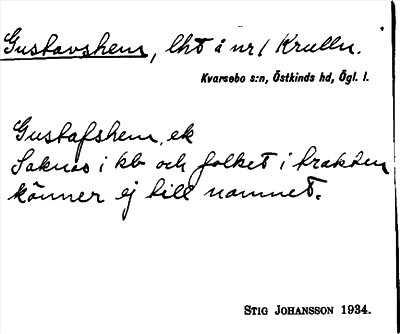 Gustavshem, lht å nr 1 Krulln.
Kvarsebo s:n, Östkinds hd, Ögl. l.
Gustafshem, ek
Saknas i kb och folket i trakten
känner ej till namnet.
STIG JOHANSSON 1934.